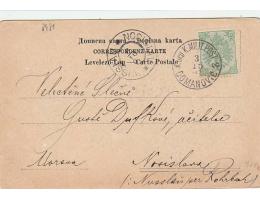 Дописна карта – Dopisna karta
CORRESPONDENZ-KARTE
Levelező-Lap Carte Postale
Velectěné Slečně
Gustě Dufkové, učitelce
Morava Nosislav
(: Nusslau per Rohrbach :)